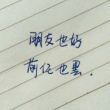 朋友也好
前任也罢.